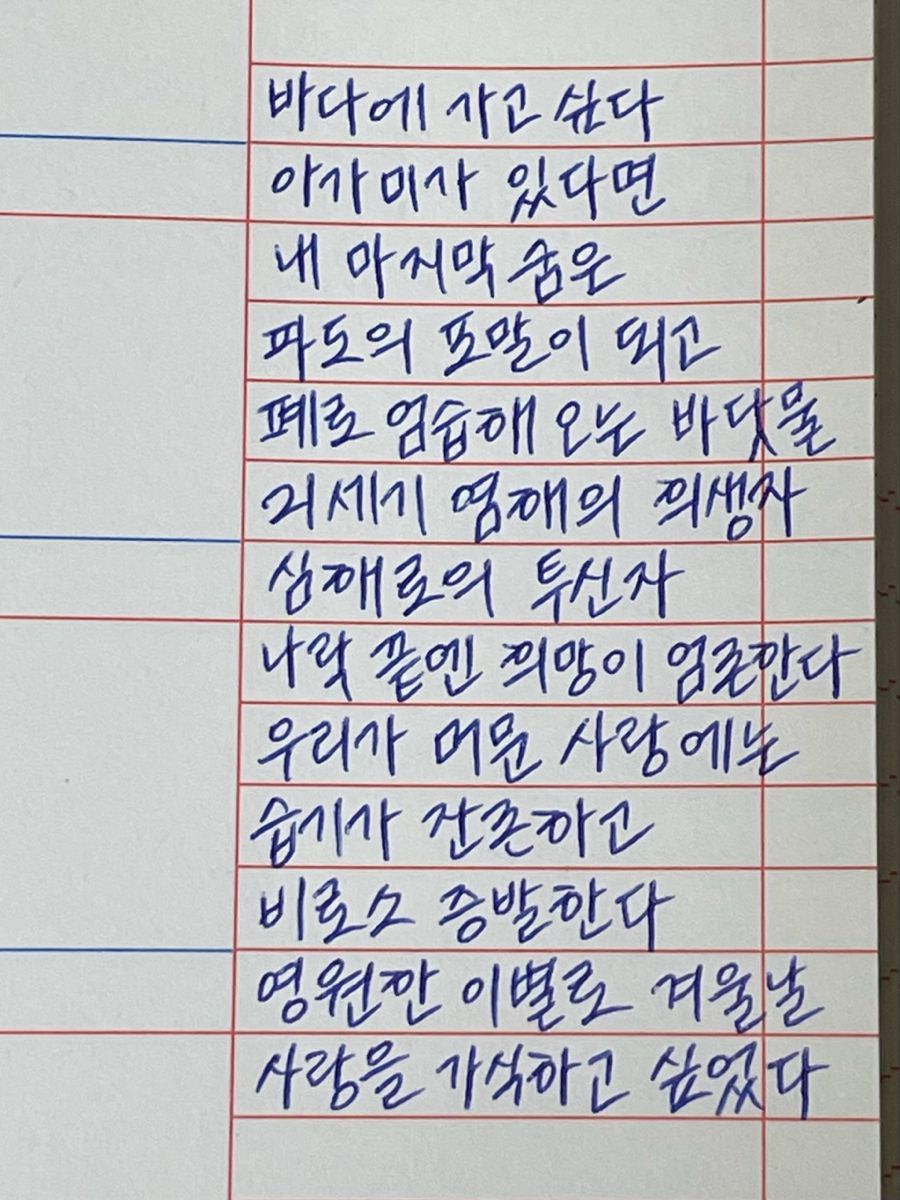 바다에 가고 싶다
아가미가 있다면
내 마지막 숨은
파도의 포말이 되고
폐로 엄습해 오는 바닷물
21세기 염해의 희생자
심해로의 투신자
나락 끝엔 희망이 엄존한다
우리가 머문 사랑에는
습기가 잔존하고
비로소 증발한다
영원한 이별로 겨울날
사랑을 가식하고 싶었다